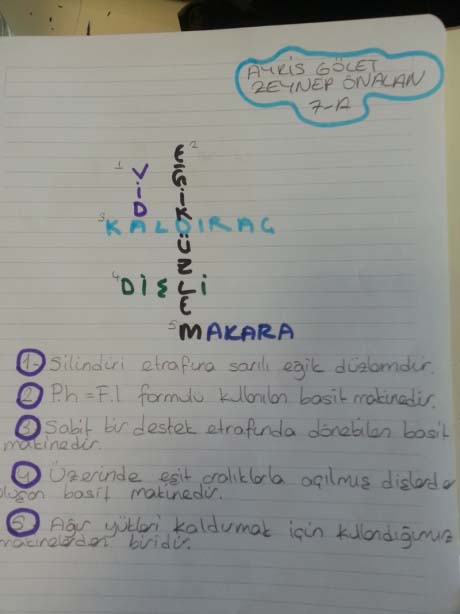 AYRİS GÖLET
ZEYNEP ÖNALAN
7-A
1
VİDA
2
EĞİKDÜZLEM
3
KALDIRAÇ
4
DİŞLİ
5
MAKARA
1- Silindiri etrafına sarılı eğik düzlemdir.
2 P.h = F.l formulu kullanılan basit makinedir.
3 Sabit bir destek etrafında dönebilen basit
makinedir.
4 Üzerinde eşit aralıklarla açılmış dişlerden
oluşan basit makinedir.
5 Ağır yükleri kaldırmak için kullandığımız
makinelerden biridir.